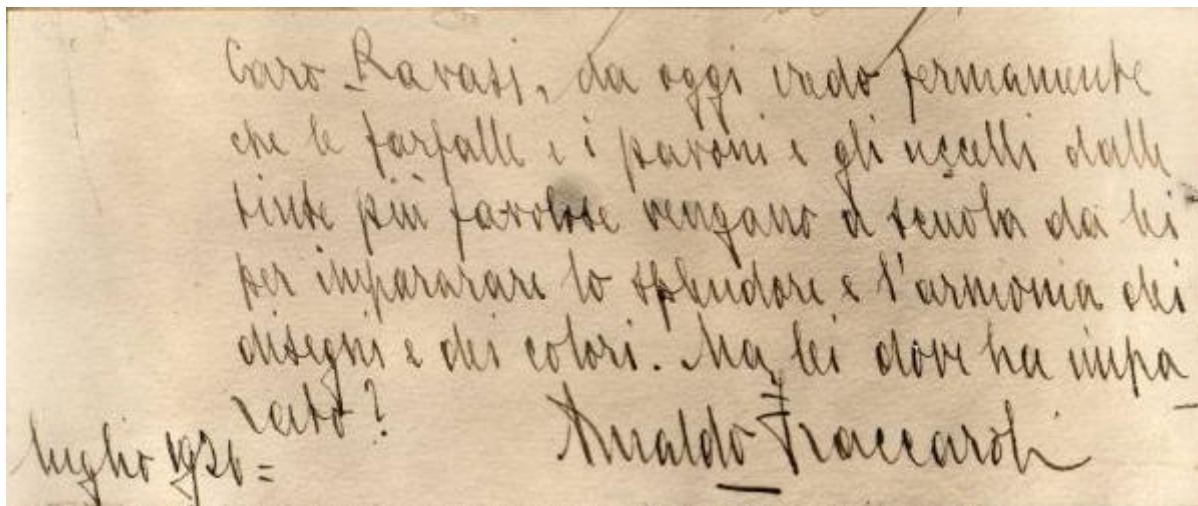 Caro Ravasi, da oggi credo fermamente
che le farfalle e i pavoni e gli uccelli dalle
tinte più favolose vengano a scuola da lei
per impararare lo splendore e l'armonia dei
disegni e dei colori. Ma lei dove ha impa
rato?
Arnaldo Fraccaroli
luglio 1926=